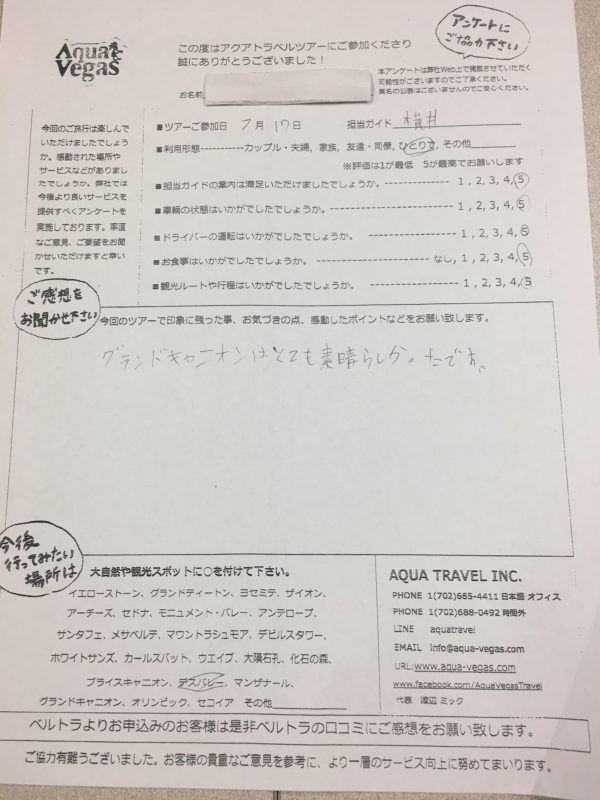 Aqua Vegas
この度はアクアトラベルツアーにご参加くださり
誠にありがとうございました！
アンケートに
ご協力下さい
本アンケートは弊社Web上で掲載させていただく
可能性がございますのでご了承ください。
実名の公表はございませんのでご安心ください。
お名前
今回のご旅行は楽しんで
いただけましたでしょう
か。感動された場所や
サービスなどがありまし
たでしょうか。弊社では
今後より良いサービスを
提供すべくアンケートを
実施しております。率直
なご意見、ご要望をお聞
かせいただけますと幸い
です。
■ツアーご参加日 7月17日 担当ガイド 横井
■利用形態-----------カップル・夫婦, 家族, 友達・同僚, ひとり旅, その他
※評価は1が最低 5が最高でお願いします
■担当ガイドの案内は満足いただけましたでしょうか。---------------- 1, 2, 3, 4, 5
■車輌の状態はいかがでしたでしょうか。---------------- 1, 2, 3, 4, 5
■ドライバーの運転はいかがでしたでしょうか。---------------- 1, 2, 3, 4, 5
■お食事はいかがでしたでしょうか。---------------- なし, 1, 2, 3, 4, 5
■観光ルートや行程はいかがでしたでしょうか。---------------- 1, 2, 3, 4, 5
ご感想を
お聞かせ下さい
今回のツアーで印象に残った事、お気づきの点、感動したポイントなどをお願い致します。
グランドキャニオンはとても素晴らしかったです。
今後
行ってみたい
場所は
大自然や観光スポットに○を付けて下さい。
イエローストーン、グランドティートン、ヨセミテ、ザイオン、
アーチーズ、セドナ、モニュメント・バレー、アンテロープ、
サンタフェ、メサベルテ、マウントラシュモア、デビルスタワー、
ホワイトサンズ、カールスバット、ウエイブ、大隕石孔、化石の森、
ブライスキャニオン、デスバレー、マンザナール、
グランドキャニオン、オリンピック、セコイア その他
AQUA TRAVEL INC.
PHONE 1(702)665-4411 日本語 オフィス
PHONE 1(702)688-0492 時間外
LINE aquatravel
EMAIL info@aqua-vegas.com
URL:www.aqua-vegas.com
www.facebook.com/AquaVegasTravel
代表 渡辺 ミック
ベルトラよりお申込みのお客様は是非ベルトラの口コミにご感想をお願い致します。
ご協力有難うございました。お客様の貴重なご意見を参考に、より一層のサービス向上に努めてまいります。